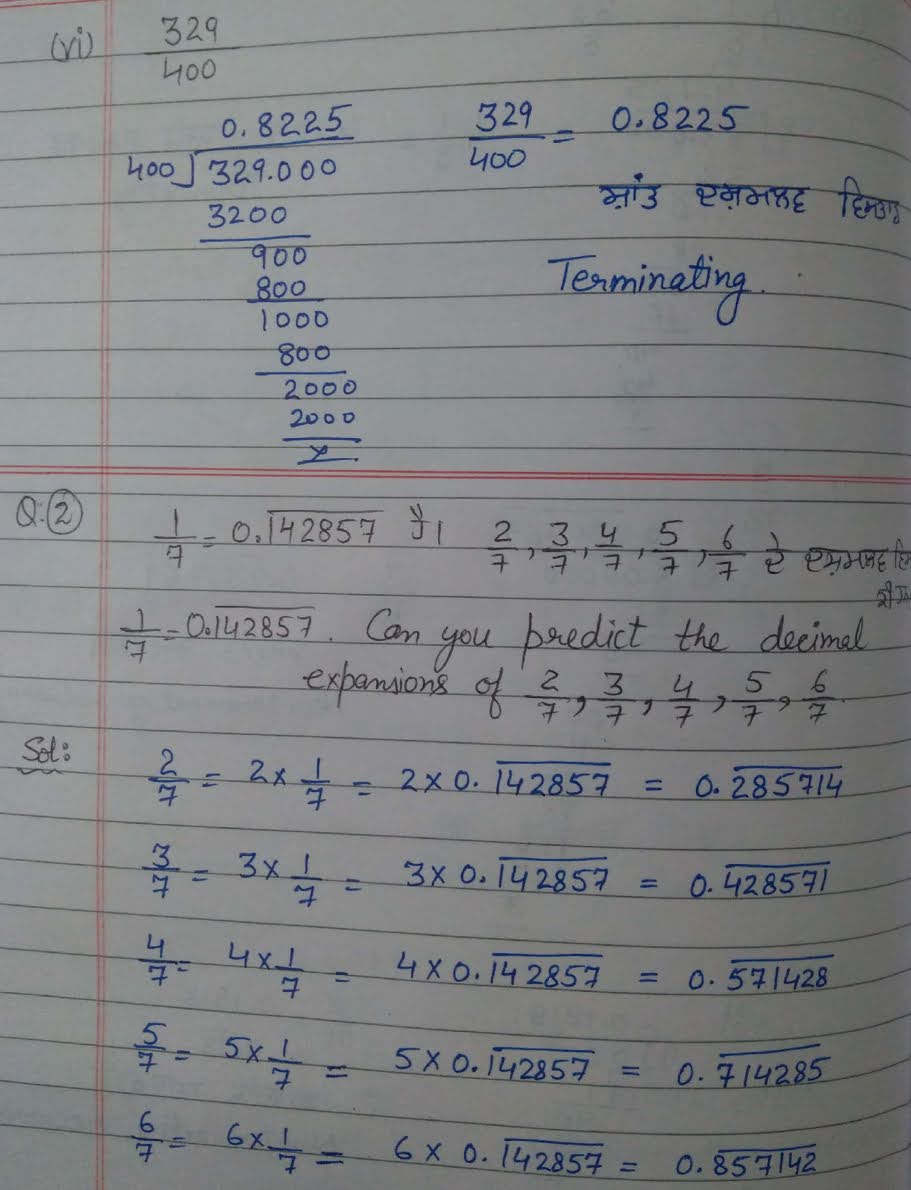 (vi) 329/400
0.8225
400)329.000
3200
900
800
1000
800
2000
2000
x
329/400 = 0.8225
ਸ਼ਾਂਤ ਦਸ਼ਮਲਵ
Terminating.
Q.② 1/7 = 0.1̅4̅2̅8̅5̅7̅ ਹੈ। 2/7, 3/7, 4/7, 5/7, 6/7 ਦੇ ਦਸ਼ਮਲਵ
1/7 = 0.1̅4̅2̅8̅5̅7̅. Can you predict the decimal
expansions of 2/7, 3/7, 4/7, 5/7, 6/7.
Sol:
2/7 = 2 × 1/7 = 2 × 0.1̅4̅2̅8̅5̅7̅ = 0.2̅8̅5̅7̅1̅4̅
3/7 = 3 × 1/7 = 3 × 0.1̅4̅2̅8̅5̅7̅ = 0.4̅2̅8̅5̅7̅1̅
4/7 = 4 × 1/7 = 4 × 0.1̅4̅2̅8̅5̅7̅ = 0.5̅7̅1̅4̅2̅8̅
5/7 = 5 × 1/7 = 5 × 0.1̅4̅2̅8̅5̅7̅ = 0.7̅1̅4̅2̅8̅5̅
6/7 = 6 × 1/7 = 6 × 0.1̅4̅2̅8̅5̅7̅ = 0.8̅5̅7̅1̅4̅2̅